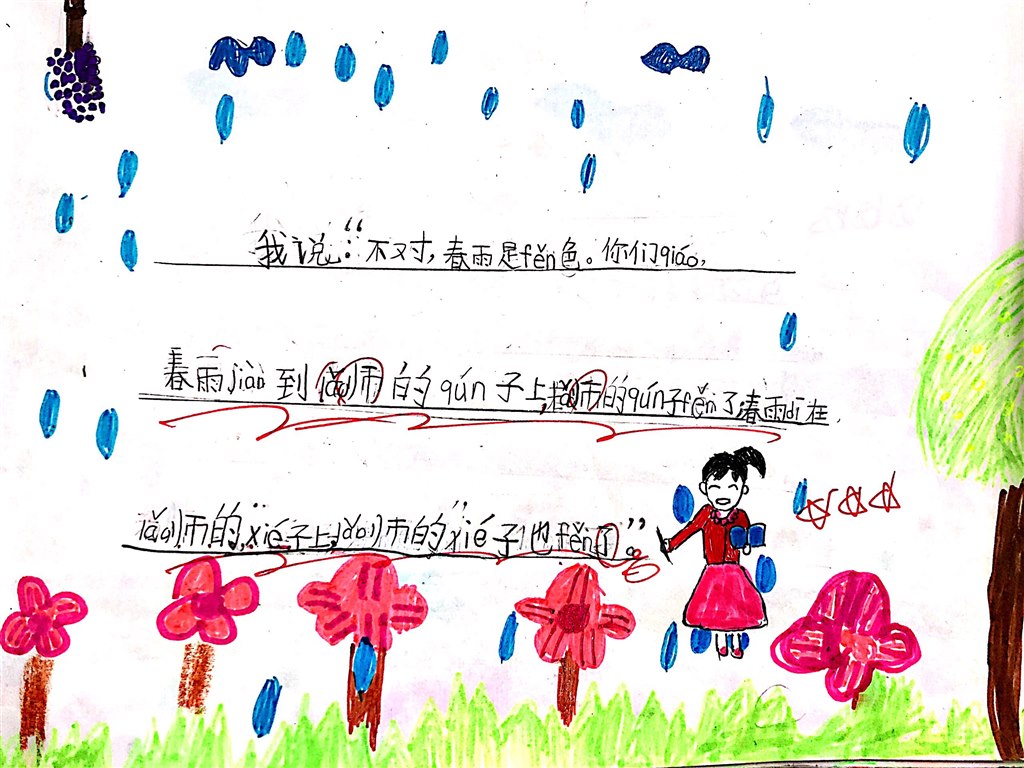 我说:“不对,春雨是fěn色。你们qiáo,
春雨jiào到lǎo师的qún子上,lǎo师的qún子fěn了,春雨dī在
lǎo师的“xié子上,lǎo师的”xié子也fěn了。”